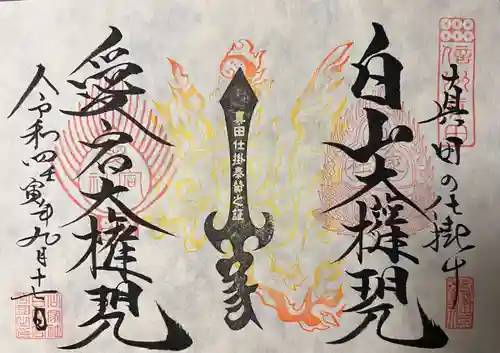 真田の仕掛け
白山大権現
真田仕掛奉納之証
愛宕大権現
令和四壬寅年九月十一日